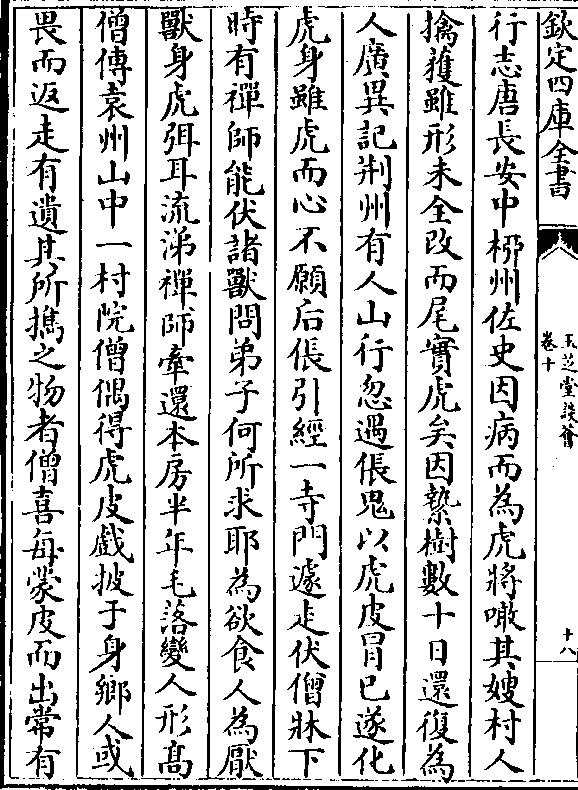 欽定四庫全書
玉芝堂談薈
卷十
十八
行志唐長安中郴州佐史因病而為虎將噉其嫂村人
擒獲雖形未全改而尾實虎矣因縶樹數十日還復為
人廣異記荆州有人山行忽遇倀鬼以虎皮冐已遂化
虎身雖虎而心不願后倀引經一寺門遽走伏僧牀下
時有禪師能伏諸獸問弟子何所求耶為欲食人為厭
獸身虎弭耳流涕禪師牽還本房半年毛落變人形髙
僧傳袁州山中一村院僧偶得虎皮戲披于身鄉人或
畏而返走有遺其所擕之物者僧喜每蒙皮而出常有